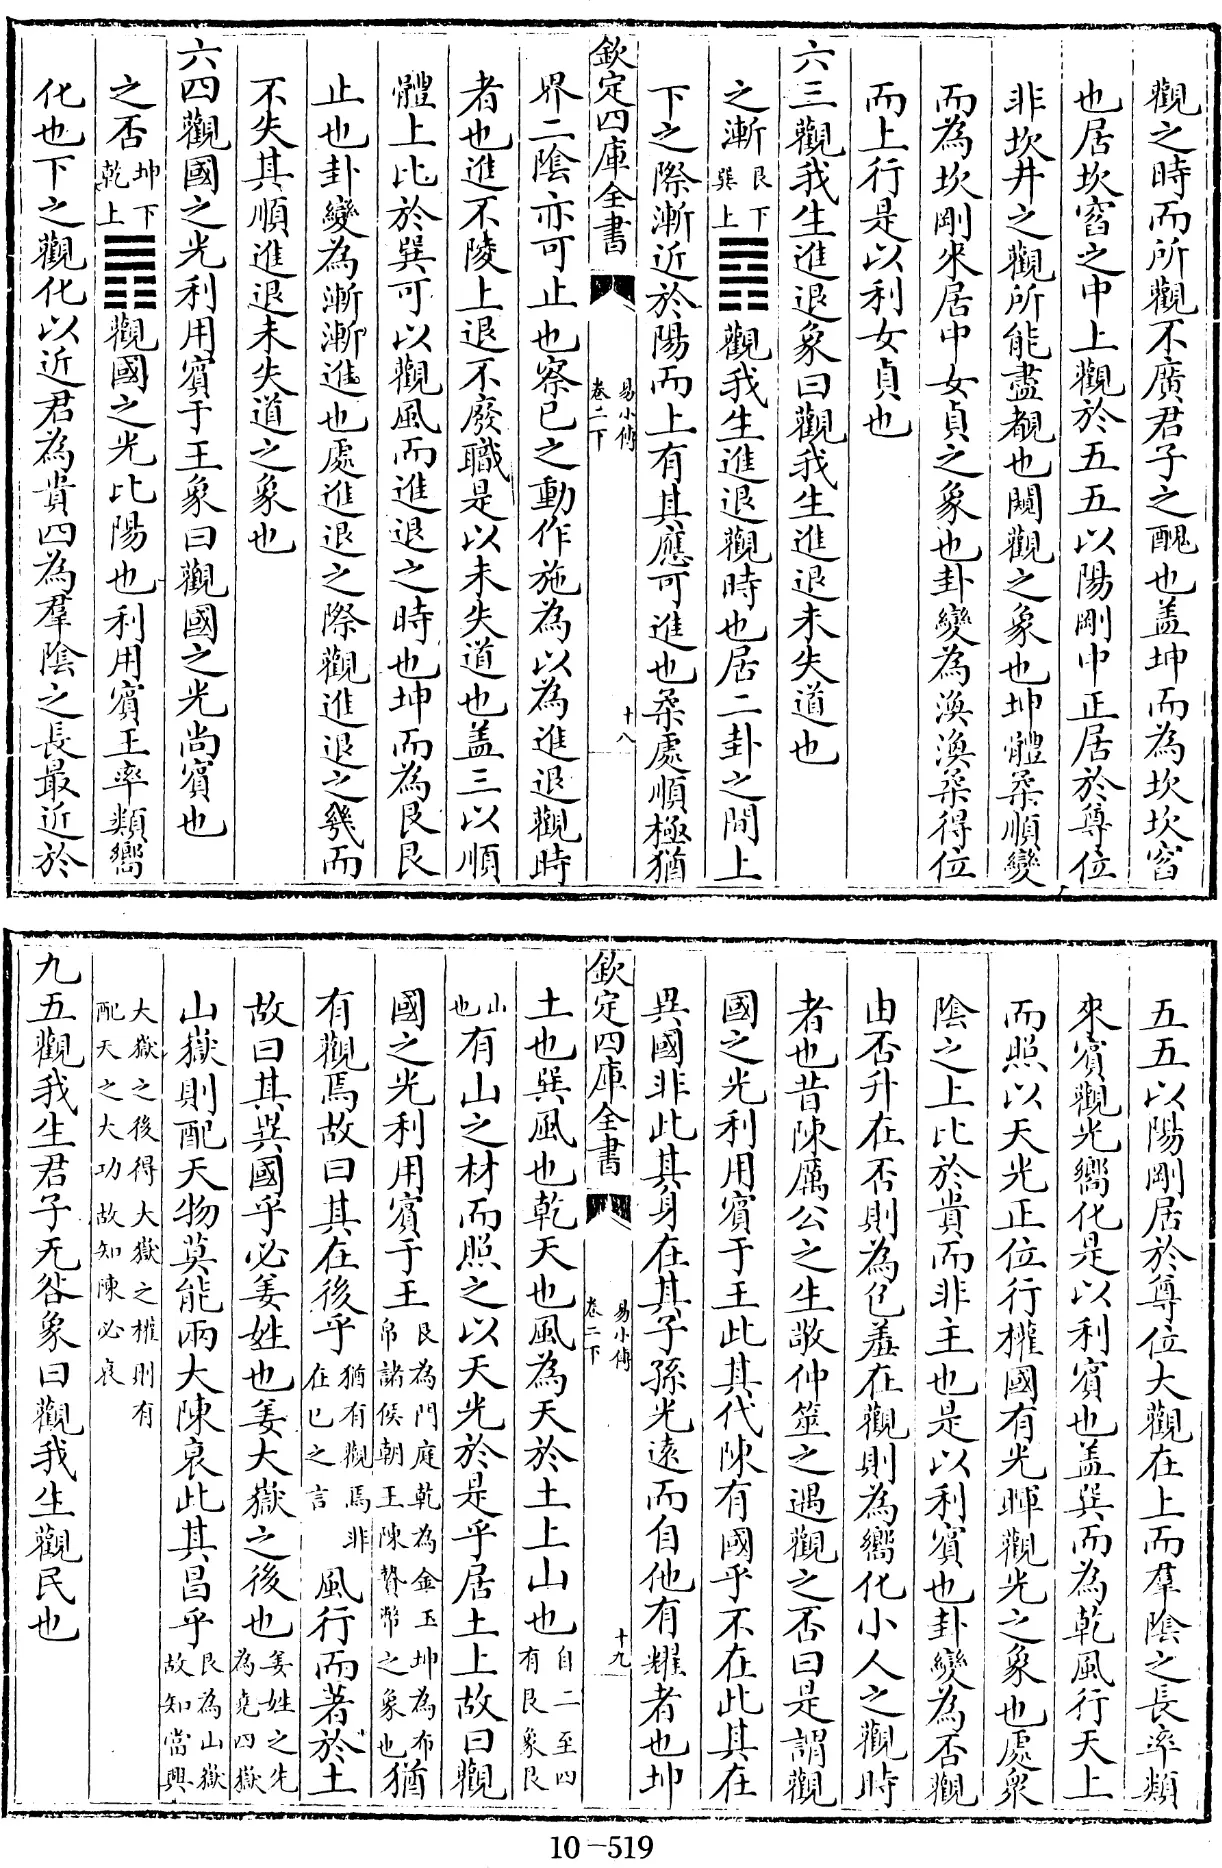 觀之時而所觀不廣君子之醜也盖坤而為坎坎窞
也居坎窞之中上觀於五五以陽剛中正居於尊位
非坎井之觀所能盡覩也闚觀之象也坤體柔順變
而為坎剛來居中女貞之象也卦變為渙渙柔得位
而上行是以利女貞也
六三觀我生進退象曰觀我生進退未失道也
之漸艮下巽上䷴觀我生進退觀時也居二卦之間上
下之際漸近於陽而上有其應可進也柔處順極猶
欽定四庫全書
易小傳
卷二下
十八
界二陰亦可止也察已之動作施為以為進退觀時
者也進不陵上退不廢職是以未失道也盖三以順
體上比於巽可以觀風而進退之時也坤而為艮艮
止也卦變為漸漸進也處進退之際觀進退之幾而
不失其順進退未失道之象也
六四觀國之光利用賓于王象曰觀國之光尚賓也
之否坤下乾上䷋觀國之光比陽也利用賓王率類嚮
化也下之觀化以近君為貴四為羣陰之長最近於
五五以陽剛居於尊位大觀在上而羣陰之長率類
來賓觀光嚮化是以利賓也盖巽而為乾風行天上
而照以天光正位行權國有光暉觀光之象也處衆
陰之上比於貴而非主也是以利賓也卦變為否觀
由否升在否則為包羞在觀則為嚮化小人之觀時
者也昔陳厲公之生敬仲筮之遇觀之否曰是謂觀
國之光利用賓于王此其代陳有國乎不在此其在
異國非此其身在其子孫光遠而自他有耀者也坤
欽定四庫全書
易小傳
卷二下
十九
土也巽風也乾天也風為天於土上山也自二至四有艮象艮
山也有山之材而照之以天光於是乎居土上故曰觀
國之光利用賓于王艮為門庭乾為金玉坤為布帛諸侯朝王陳贄幣之象也猶
有觀焉故曰其在後乎猶有觀焉非在已之言風行而著於土
故曰其異國乎必姜姓也姜大嶽之後也姜姓之先為堯四嶽
山嶽則配天物莫能兩大陳衰此其昌乎艮為山嶽故知當興
大嶽之後得大嶽之權則有配天之大功故知陳必衰
九五觀我生君子无咎象曰觀我生觀民也
10-519